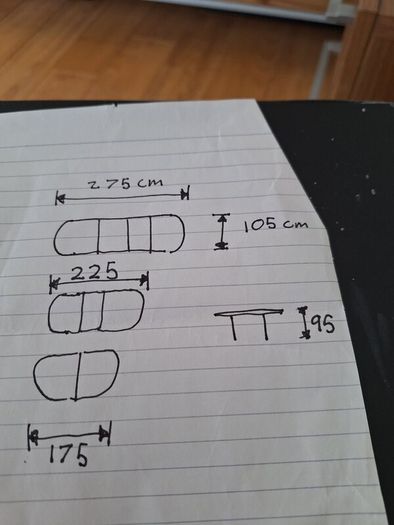 275 cm
105 cm
225
95
175